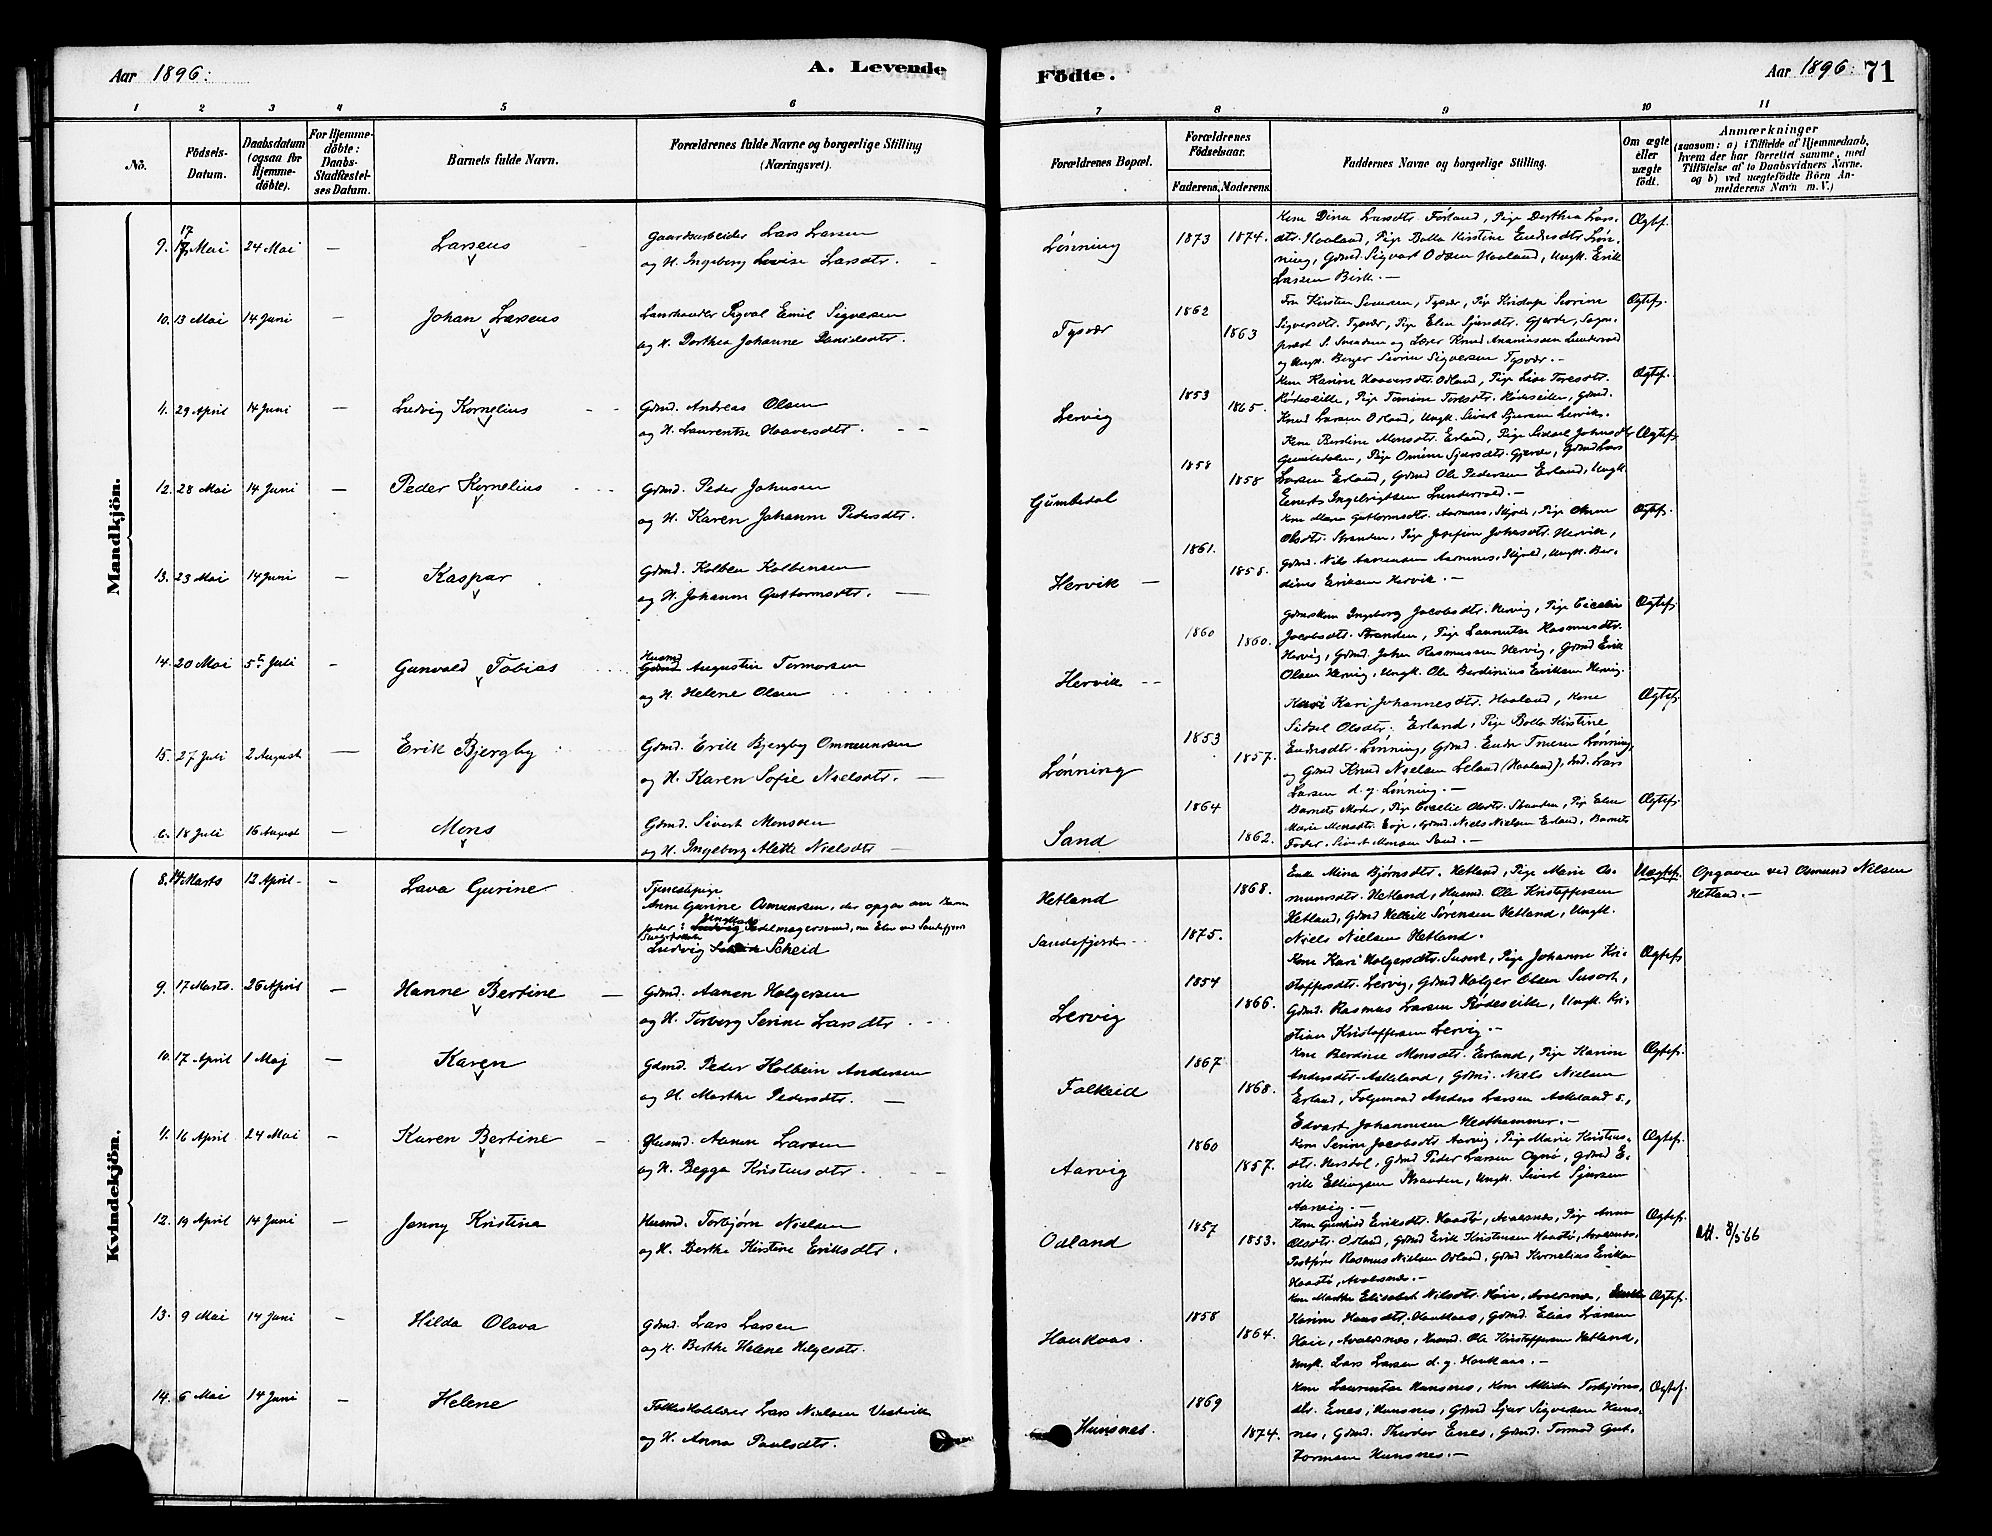 Aar 1896.
A. Levende
Födte.
Aar 1896.
71
1 2 3 4 5 6 7 8 9 10 11
Nö.
Födsels-
Datum.
Daabsdatum
(ogsaa for
Hjemme-
döbte).
For Hjemme-
döbte:
Daabs-
Stadfæstel-
ses Datum.
Barnets fulde Navn.
Forældrenes fulde Navne og borgerlige Stilling
(Næringsvei).
Forældrenes Bopæl.
Forældrenes
Födselsaar.
Faderens. Moderens.
Faddernes Navne og borgerlige Stilling.
Om ægte
eller
uægte
födt.
Anmærkninger
(saasom: a) i Tilfælde af Hjemmedaab,
hvem der har forrettet samme, med
Tilföielse af to Daabsvidners Navne.
og b) ved uægtefödte Börn An-
melderens Navn m. V.)
Mandkjön.
9. 17 Mai 24 Mai — Larseus
Gaardsarbeider Lars Larsen
og H. Ingeborg Lovise Larsdtr.
Lønning 1873 1874.
Kone Dina Larsdtr. Førland, Pige Dorthea Lars-
dtr. Haaland, Pige Bolla Kirstine Endresdtr. Løn-
ning, Gdmd. Sigvart Odsen Haaland, Ungk. Erik
Larsen Birk. —
Ægtef.
10. 13 Mai 14 Juni — Johan Larseus
Landhandler Sigval Emil Sigversen
og H. Dorthea Johanne Danielsdtr.
Tysvær 1862 1863
Sigversdtr. Tysvær, Pige Elen Sjursdtr. Gjerde, Sogne-
præst S. Svendsen og Lærer Knud Ananiassen Lundervold
og Ungk. Berger Severin Sigversen Tysvær. —
Ægtef.
11. 29 April 14 Juni — Ludvig Kornelius
Gdmd. Andreas Olsen
og H. Laurentse Haaversdtr.
Lervig 1853 1865.
Kone Karine Haaversdtr. Odland, Pige Lise Toresdtr.
Rødeseike, Pige Tomine Torbsdtr. Rødeseike, Gdmd.
Knud Larsen Odland, Ungk. Sivert Sjursen Lervik.
Ægtef.
12. 28 Mai 14 Juni — Peder Kornelius
Gdmd. Peder Johnsen
og H. Karen Johanne Pedersdtr.
Gumbedal 1858 1858
Kone Berdine Monsdtr. Erland, Pige Sidsel Johnsdtr
Gumbedalen, Pige Omine Sjursdtr. Gjerde, Gdmd Lars
Larsen Erland, Gdmd Ole Pedersen Erland, Ungk.
Einert Ingebrigtsen Lundervold. —
Ægtef.
13. 23 Mai 14 Juni — Kaspar
Gdmd. Kolben Kolbensen
og H. Johanne Guttormsdtr.
Hervik — 1861. 1858.
Kone Maren Guttormsdtr. Aarnnes, Skjold, Pige Anne
Olsdtr. Stranden, Pige Josefine Johnsdtr. Hervik,
Gdmd. Nils Aanensen Aamnes, Skjold, Ungk. Ber-
dines Eriksen Hervik. —
Ægtef.
14. 20 Mai 5te Juli — Gunvald Tobias
Husmd
Gdmd. Augustin Tormorsen
og H. Helene Olsen
Hervik 1860 1860.
Gdmdskone Ingeborg Jacobsdtr. Hervig, Pige Cicelie
Jacobsdtr. Stranden, Pige Laurentse Rasmusdtr.
Hervig, Gdmd. John Rasmussen Hervig, Gdmd Erik
Olsen Hervig, Ungk. Ole Berdinius Eriksen Hervig.
Ægtef.
15. 27 Juli 2 August — Erik Bjergby
Gdmd. Erik Bjergby Ommundsen
og H. Karen Sofie Nielsdtr. —
Lønning 1853 1857.
Kari Johannesdtr. Haaland, Kone
Sidsel Olsdtr. Erland, Pige Bolla Kirstine
Endresdtr. Lønning, Gdmd. Endre Tnesen Lønning,
og Gdmd Knud Nielsen Leland (Haaland), Gdmd. Lars
Larsen d. y. Lønning. —
Ægtef.
18 Juli 16 August — Mons
Gdmd. Sivert Monsen
og H. Ingeborg Alette Nielsdtr —
Sand 1864 1862.
Barnets Moder, Pige Cicelie Olsdtr. Stranden, Pige Elen
Marie Monsdtr. Eoje, Gdmd Niels Nielsen Erland, Barnets
Fader Sivert Monsen Sand. —
Ægtef.
Kvindekjön.
8. 14 Marts 12 April — Lava Gurine
Tjenestepige
Anne Gurine Asmundsen, der opgav som Barne-
fader:
Ludvig Scheid
Hetland
Sandefjord 1875. 1868.
Enke Mina Bjørnsdtr. Hetland, Pige Marie As-
mundsdtr. Hetland, Husmd. Ole Kristoffersen
Hetland, Gdmd Henrik Sørensen Hetland, Ungk.
Niels Nielsen Hetland.
Uægtef.
Opgaven ved Asmund Nilsen
Hetland. —
9. 17 Marts. 26 April — Hanne Bertine —
Gdmd. Aanen Holgersen
og H. Torborg Serine Larsdtr.
Lervig 1854 1866.
Kone Kari Holgersdtr. Susort, Pige Johanne Kri-
stoffersdtr. Lervig, Gdmd Holger Olsen Susort,
Gdmd. Rasmus Larsen Rødeseike, Ungk. Kri-
stian Kristoffersen Lervig. —
Ægtef.
10. 17 April 1 Maj — Karen
Gdmd. Peder Holbein Andersen
og H. Marthe Pedersdtr. —
Falkeid 1867 1868.
Kone Berdine Monsdtr. Erland, Pige Karine
Andersdtr. Askeland, Gdmd. Niels Nielsen
Erland, Folgemand Anders Larsen Askeland s.,
Edvart Johannesen Nesthammer. —
Ægtef.
11. 16 April 24 Mai — Karen Bertine —
Husmd. Aanen Larsen
og H. Begga Kristensdtr.
Aarvig 1860 1857.
Kone Serine Jacobsdtr Aarvig, Pige Marie Kristens-
dtr. Hersdal, Gdmd Peder Larsen Ognø, Gdmd E-
rik Ellingsen Stranden, Ungk. Sivert Sjursen
Aarvig. —
Ægtef.
12. 19 April 14 Juni — Jenny Kristina
Husmd. Torbjørn Nielsen
og H. Berthe Kirstine Eriksdtr.
Odland 1857 1853.
Kone Gunhild Eriksdtr. Haastø, Avalsnes, Pige Anna
Olsdtr. Odland, Gdmd Erik Kristensen Haastø, Avalsnes,
Postfører Rasmus Nielsen Odland, Gdmd Kornelius Eriksen
Haastø, Avalsnes. —
Ægtef.
att. 8/3 66
13. 9 Mai 14 Juni — Hilda Olava
Gdmd. Lars Larsen
og H. Berthe Helene Helgesdtr.
Haukaas. 1858 1864.
Kone Marthe Elisabet Nilsdtr. Høie, Avalsnes,
Karine Hansdtr. Haukaas, Gdmd. Elias Larsen
Høie, Avaldsnes, Husmd. Ole Kristoffersen Hetland,
Ungk. Lars Larsen d. y. Haukaas. —
Ægtef.
14. 6 Mai 14 Juni — Helene
Folkeskolelærer Lars Nielsen Vestvik
og H. Anna Paulsdtr.
Hunsnes. 1869 1874.
Kone Laurentse Hunsnes, Kone Allida Torbjørns-
dtr. Enes, Hunsnes, Gdmd Sjur Sigversen Huns-
nes, Gdmd. Theodor Enes, Gdmd. Tormod Gut-
tormsen Hunsnes. —
Ægtef.